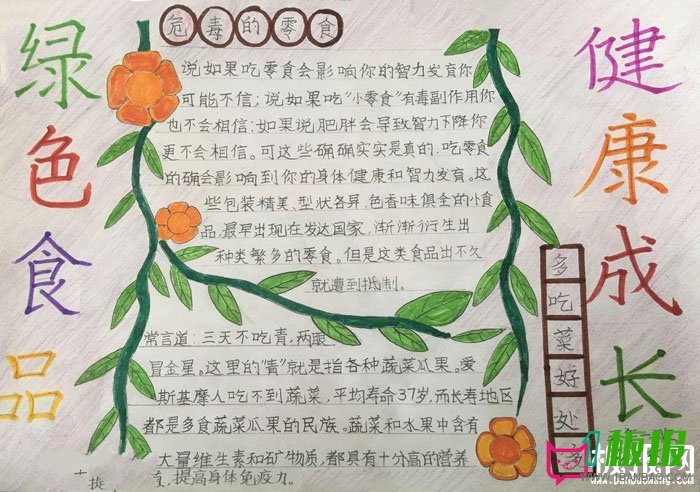 危毒的零食
绿色食品
说如果吃零食会影响你的智力发育你
可能不信；说如果吃“小零食”有毒副作用你
也不会相信；如果说肥胖会导致智力下降你
更不会相信。可这些确确实实是真的，吃零食
的确会影响到你的身体健康和智力发育。这
些包装精美，型状各异，色香味俱全的小食
品，最早出现在发达国家，渐渐衍生出
种类繁多的零食。但是这类食品出不久
就遭到抵制。
常言道：三天不吃青，两眼
冒金星。这里的“青”就是指各种蔬菜瓜果。爱
斯基摩人吃不到蔬菜，平均寿命37岁，而长寿地区
都是多食蔬菜瓜果的民族。蔬菜和水果中含有
大量维生素和矿物质，都具有十分高的营养
提高身体免疫力。
健康成长
多吃菜好处多
板报网